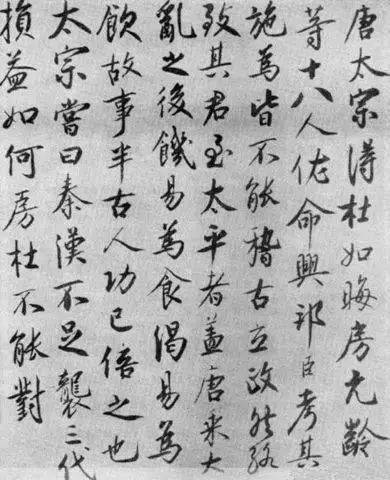 唐太宗得杜如晦房元齡
等十八人佐命興邦臣考其
施為皆不能稽古立政然
致其君至太平者蓋唐承大
亂之後饑易為食渴易為
飲故事半古人功已倍之也
太宗嘗曰秦漢不足襲三代
損益如何房杜不能對